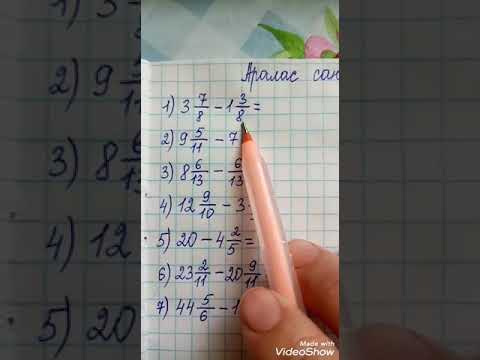 Аралас сан
1) 3 7/8 - 1 3/8 =
2) 9 5/11 - 7
3) 8 6/13 - 6/13
4) 12 9/10 - 3
5) 20 - 4 2/5 =
6) 23 2/11 - 20 9/11
7) 44 5/6 - 1
2) 9
3) 8
4) 12
5) 20
Made with
VideoShow